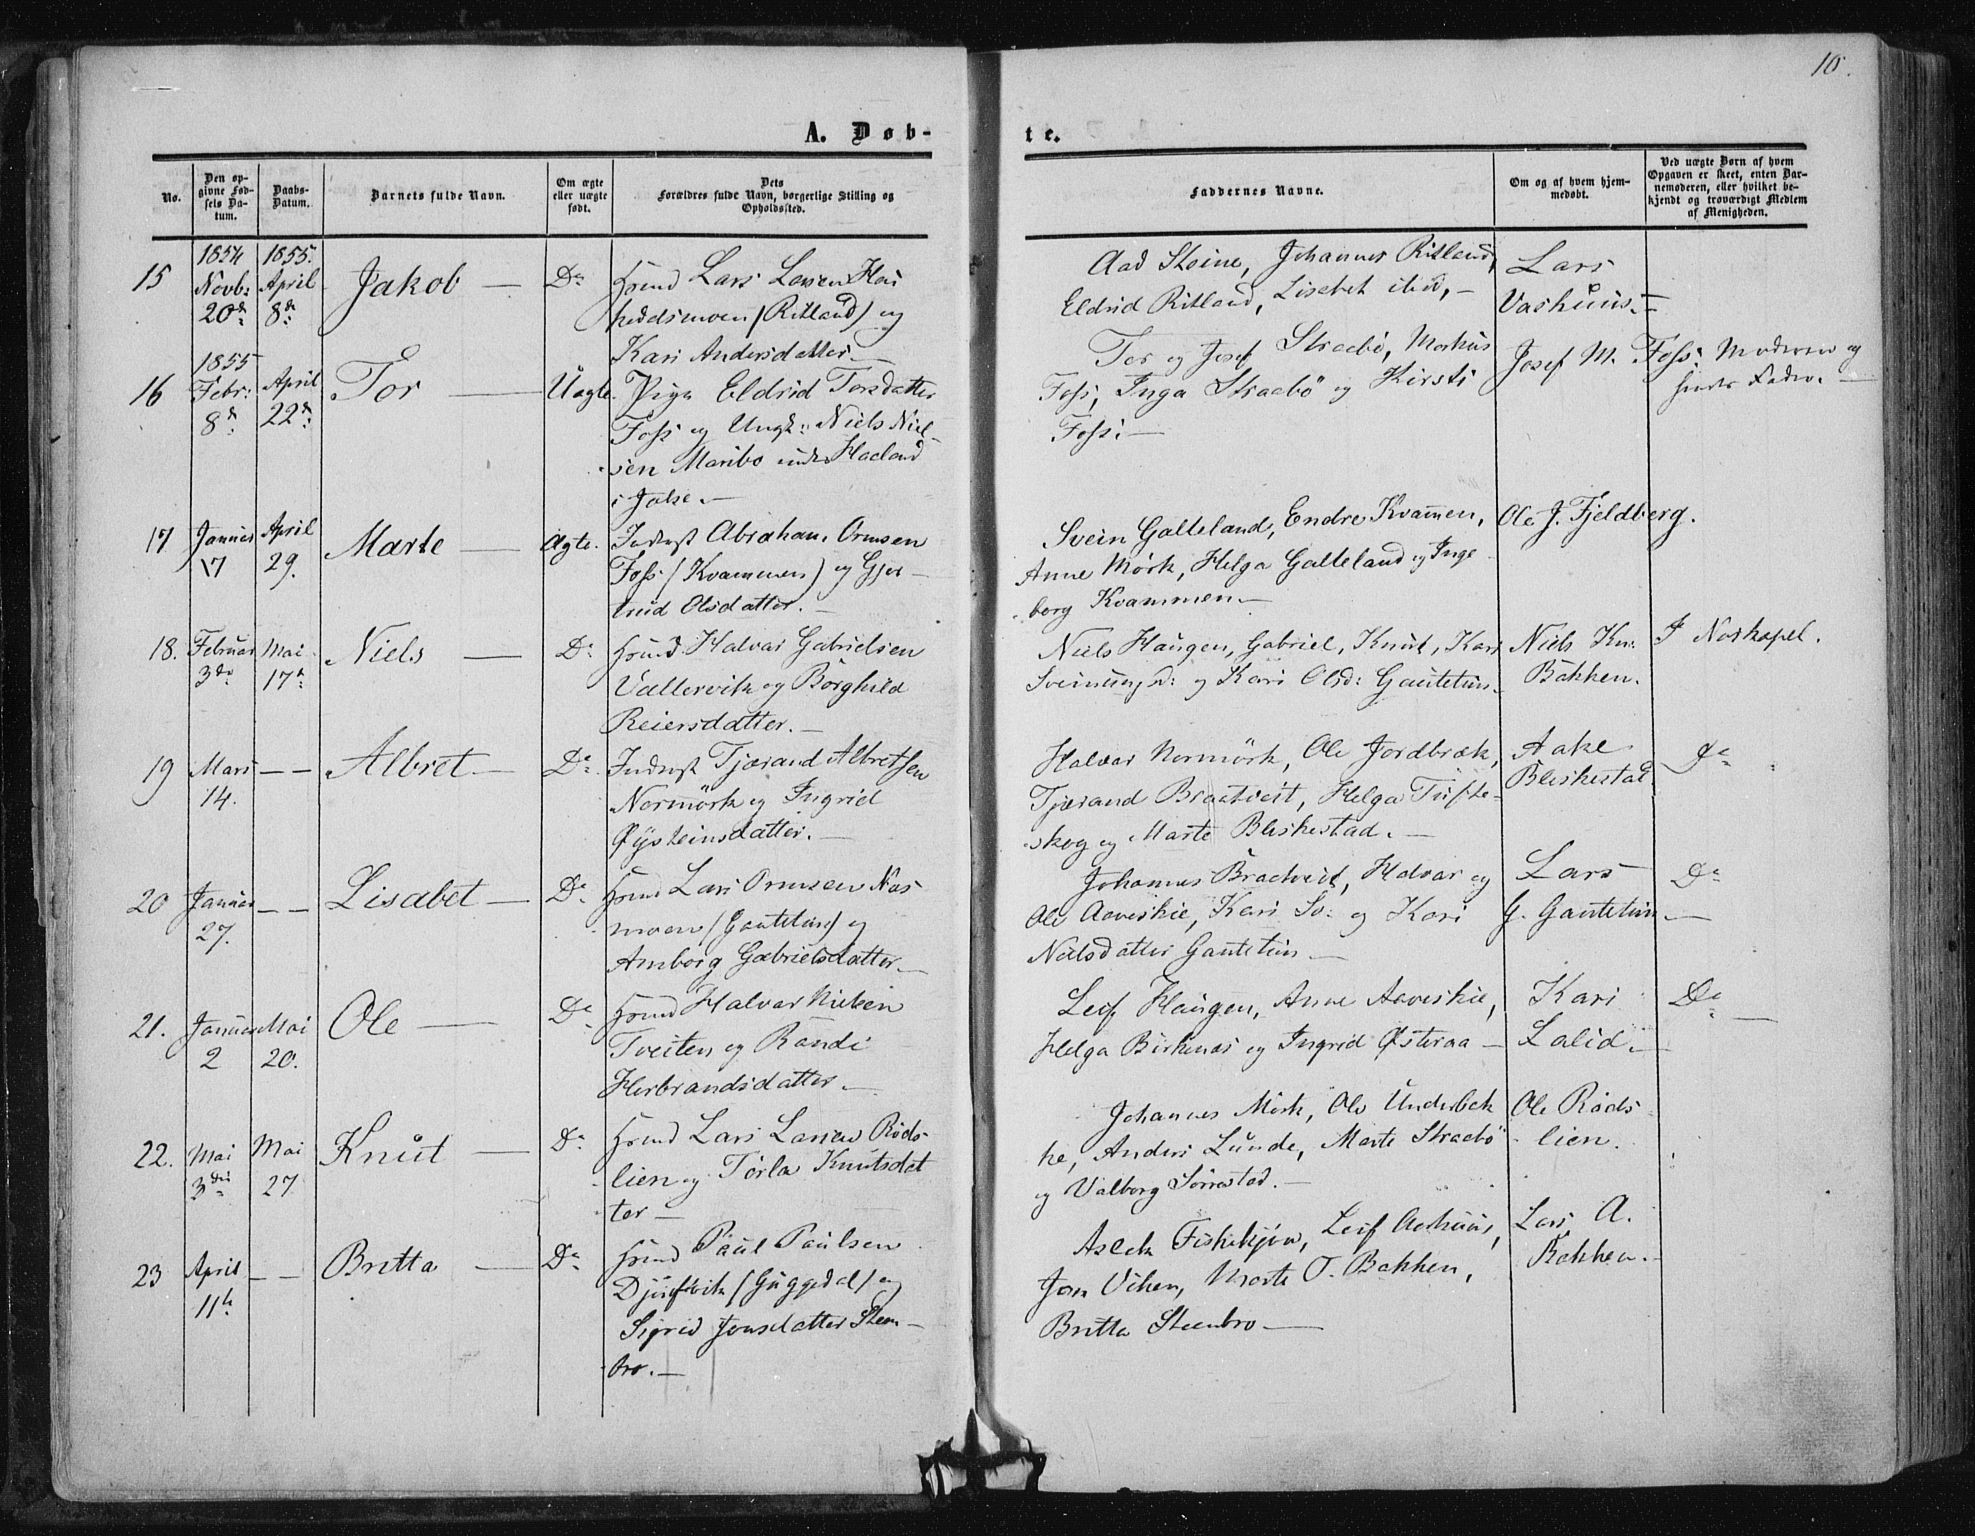 10.
A. Døb-
te.
No.
Den op-
givne Fød-
sels Da-
tum.
Daabs-
Datum.
Barnets fulde Navn.
Om ægte
eller uægte
født.
Dets
Forældres fulde Navn, borgerlige Stilling og
Opholdssted.
Faddernes Navne.
Om og af hvem hjem-
medøbt.
Ved uægte Børn af hvem
Opgaven er skeet, enten Bar-
nemoderen, eller hvilket be-
kjendt og troværdigt Medlem
af Menigheden.
15
1854
Novb:
20de
1855.
April
8de
Jakob —
Do
Lars Larsen
(Ritland) og
Kari Andersdatter —
Aad Steine, Johannes Ritland,
Eldrid Ritland, Lisabet ibid, —
Lars
Vashuus. —
16
1855
Febr:
8de
April
22de
Tor —
Uægte.
Pige Eldrid Torsdatter
Foss og Ungk: Niels Niel-
sen Maribo under Haeland
i Jelse. —
Tor og Josef Straebø, Markus
Foss, Inga Straebø og Kirsti
Foss. —
Josef M. Foss
Moderen og
hendes Fader. —
17
Januar
17
April
29.
Marte —
Ægte.
Inderst Abraham Ormsen
Foss (Kvammen) og Gjer-
trud Olsdatter. —
Svein Galteland, Endre Kvammen,
Anne Mörk, Helga Galteland og Inge-
borg Kvammen —
Ole J. Fjeldberg.
18.
Februar
3die
Mai
17de
Niels —
Do
Halvar Gabrielsen
Vallervik og Borghild
Reiersdatter. —
Niels Haugen, Gabriel, Knut, Kari
Sveinungsd: og Kari Olsd: Gautetun.
Niels Kn:
Bakken.
I Naskapel.
19
Mars
14.
— —
Albret —
Do
Inderst Tjærand Albretsen
Normörk og Ingrid
Øysteinsdatter. —
Halvar Normörk, Ole Jordbræk,
Tjærand Bratveit, Helga Tufte-
skog og Marte Bleskestad. —
Aake
Bleskestad
Do
20
Januar
27.
— —
Lisabet —
Do
Lars Ormsen Nas-
moen (Gautetun) og
Amborg Gabrielsdatter —
Johannes Bratveit, Halvar og
Ole Aaveskie, Kari Sv: og Kari
Nielsdatter Gautetun —
Lars
G. Gautetun —
Do
21.
Januar
2
Mai
20.
Ole —
Do
Halvar Nielsen
Tveiten og Randi
Herbrandsdatter —
Leif Haugen, Anne Aaveskie,
Helga Birkenes og Ingrid Østeraa —
Kari
Lalid. —
Do —
22.
Mai
3die
Mai
27
Knut —
Do
Lars Larsen Röds-
lien og Torla Knutsdat
ter —
Johannes Mörk, Ole Underbak
ke, Anders Lunde, Marte Straebø
og Valborg Sörrestad. —
Ole Röds-
lien.
23
April
11te
— —
Britta —
Do
Paul Paulsen
Djupevik (Guggedal) og
Sigrid Jonsdatter Steen-
bro. —
Aslek Fiskekjön, Leif Aarhuus,
Jon Viken, Marte T. Bakken,
Britta Steenbro —
Lars A.
Bakken. —